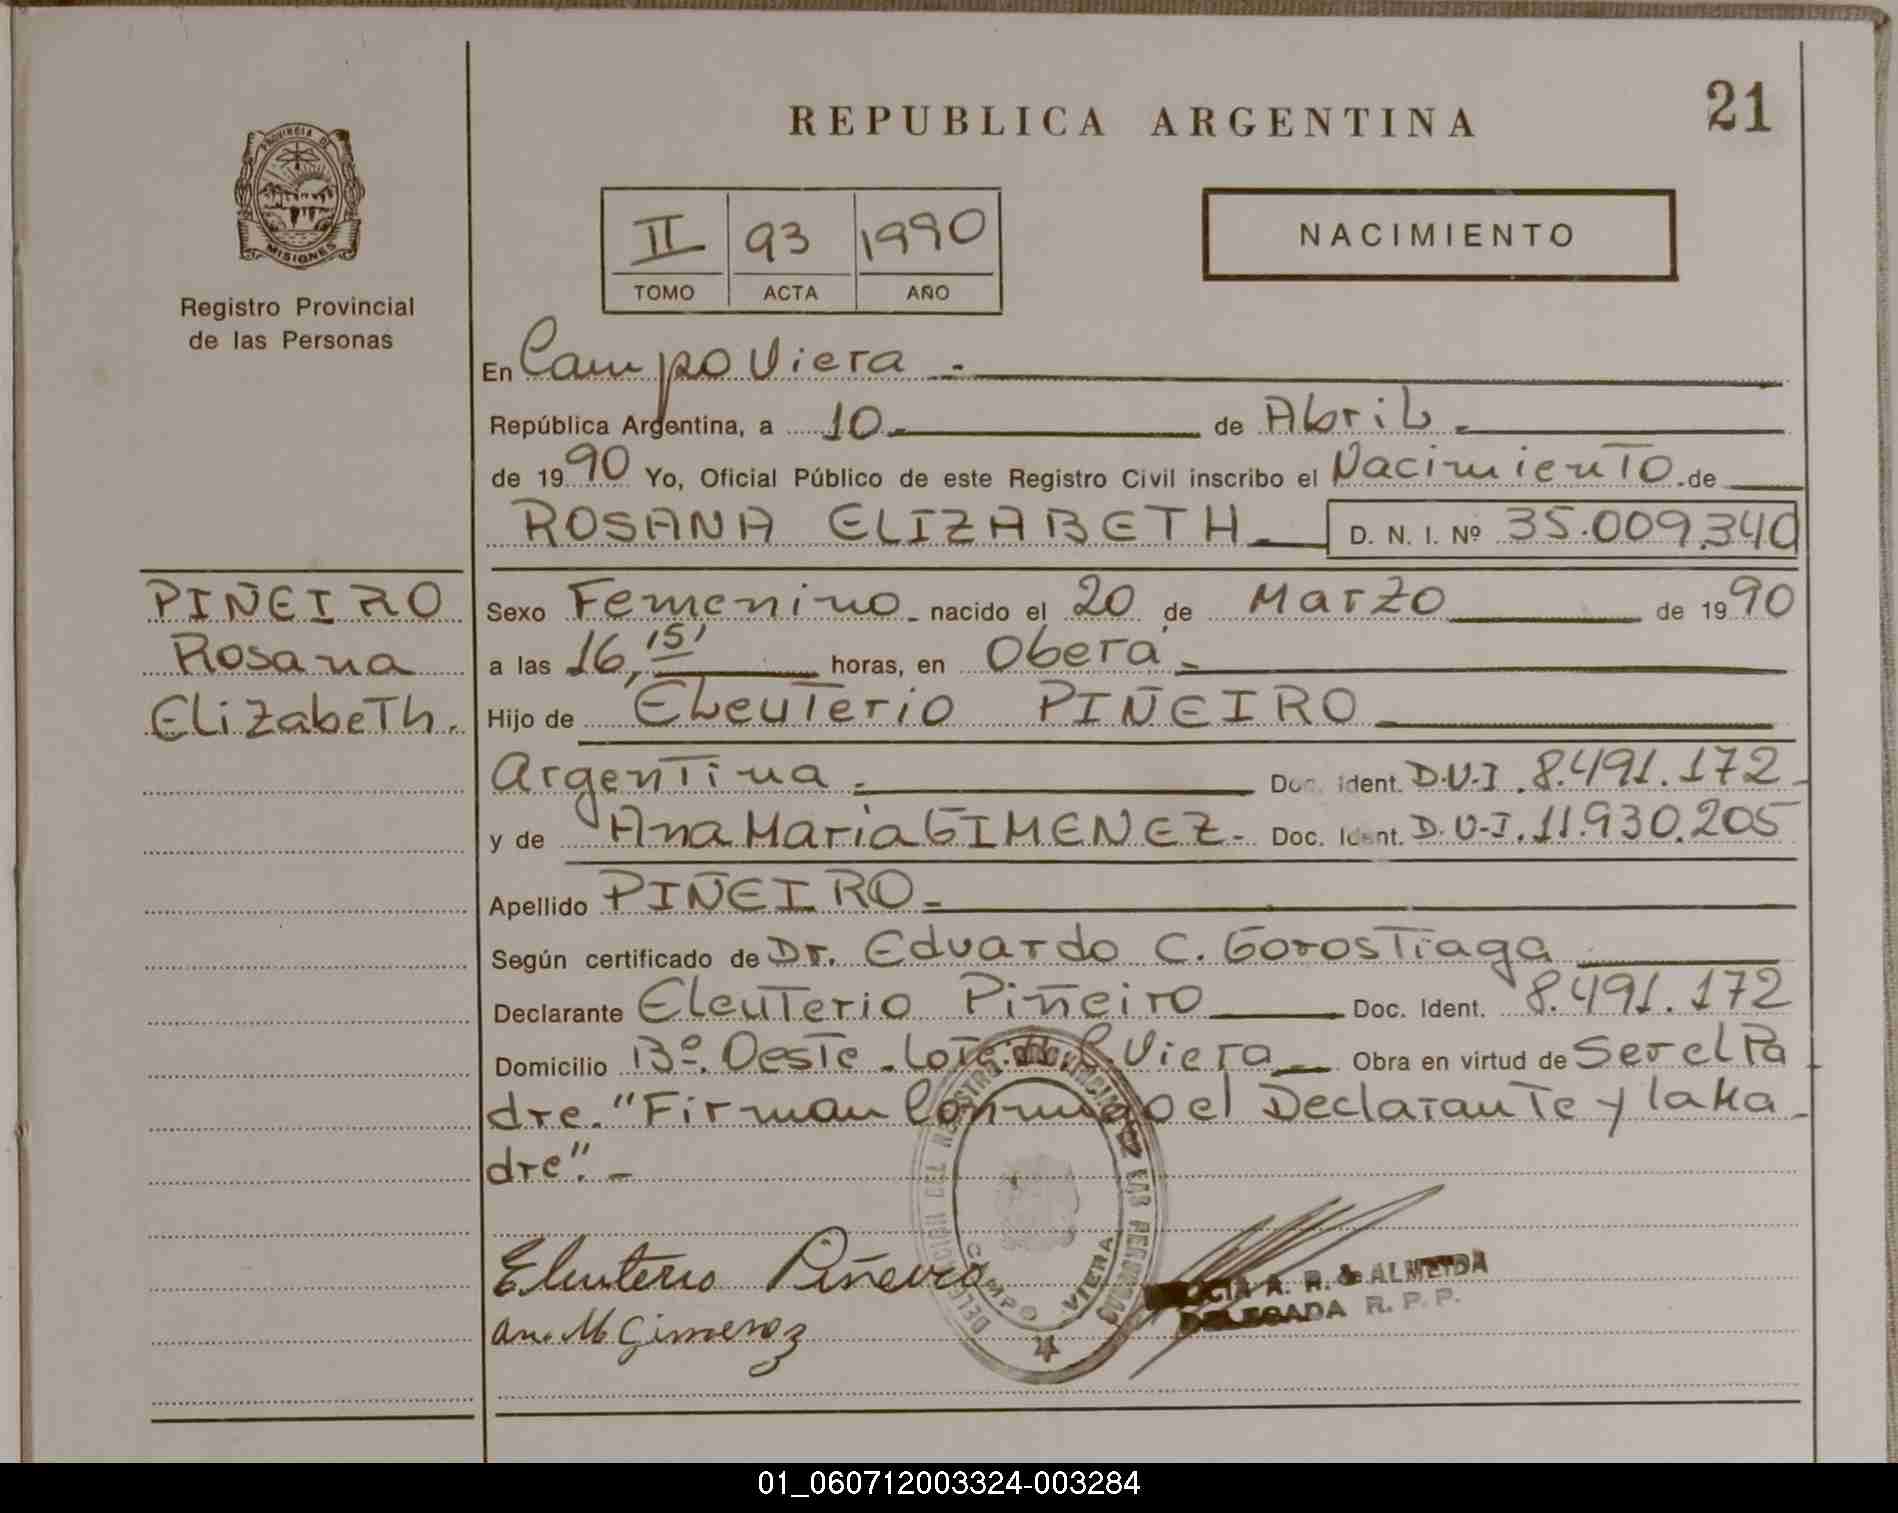 REPUBLICA ARGENTINA
21
PROVINCIA DE
MISIONES
Registro Provincial
de las Personas
II 93 1990
TOMO ACTA AÑO
NACIMIENTO
En Campo Viera.-
República Argentina, a 10- de Abril-
de 1990 Yo, Oficial Público de este Registro Civil inscribo el Nacimiento de
ROSANA ELIZABETH- D. N. I. Nº 35.009.340
PIÑEIRO
Rosana
Elizabeth.
Sexo Femenino- nacido el 20 de Marzo de 1990
a las 16,15' horas, en Oberá-
Hijo de Eleuterio PIÑEIRO-
Argentina.- Doc. Ident. D.U-I. 8.491.172-
y de Ana Maria GIMENEZ- Doc. Ident. D.U-I. 11.930.205
Apellido PIÑEIRO-
Según certificado de Dr. Eduardo C. Gorostiaga
Declarante Eleuterio Piñeiro Doc. Ident. 8.491.172
Domicilio Bº. Oeste - Lote Viera- Obra en virtud de Ser el Pa
dre. "Firman Conmigo el Declarante y la Ma-
dre".-
DELEGACION DEL REGISTRO PROVINCIAL DE LAS PERSONAS
CAMPO VIERA
Eleuterio Piñeiro
Ana M Gimenez
R. de ALMEIDA
DELEGADA R. P. P.
01_060712003324-003284